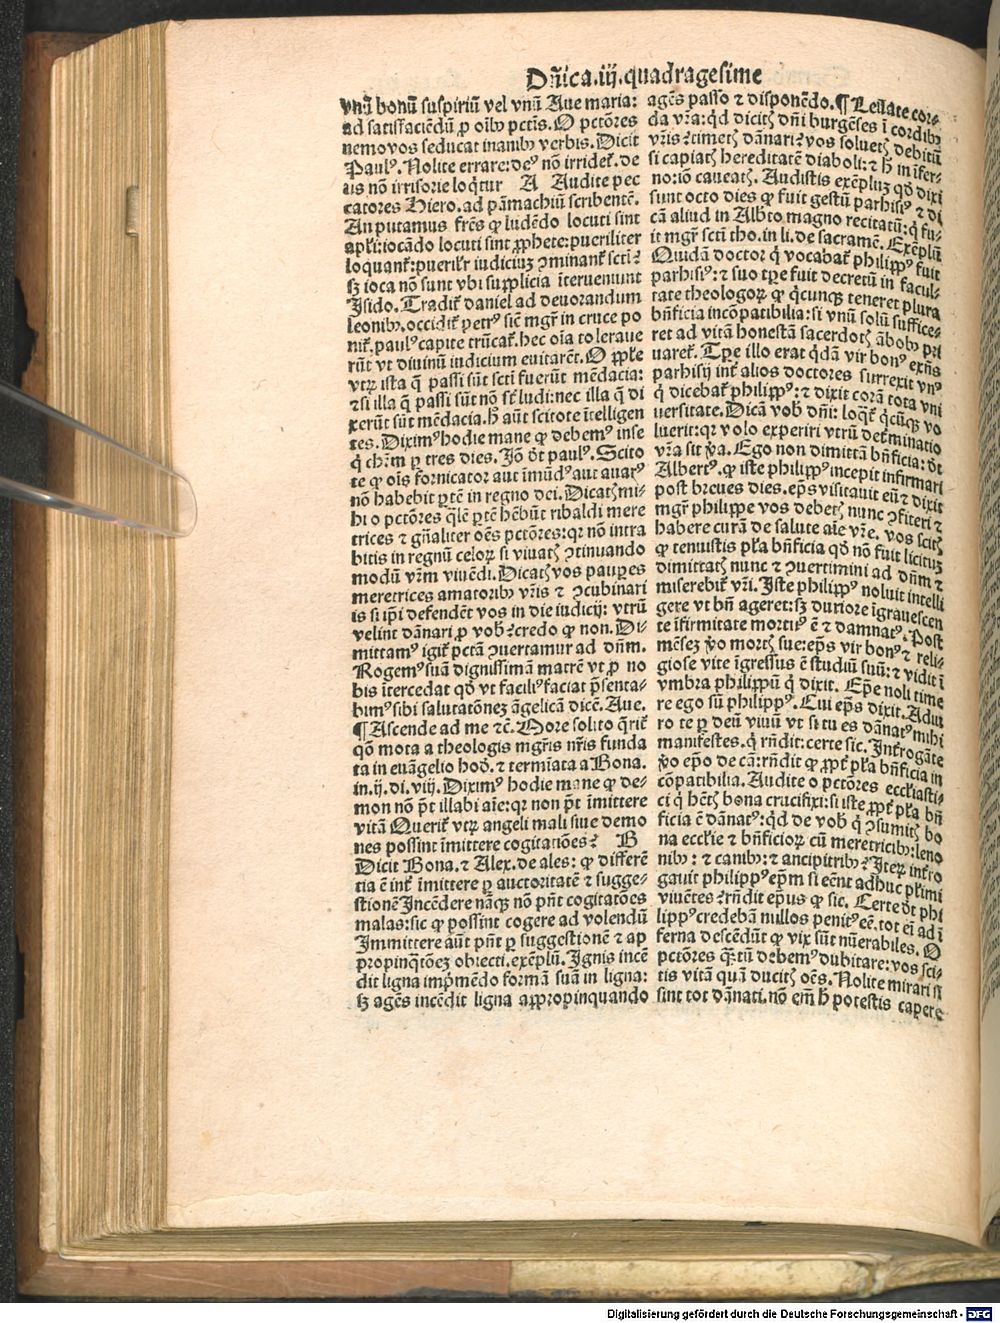 Dñica.iij.quadragesime
vnũ bonũ suspiriũ vel vnũ Aue maria:
ad satisfaciẽdũ ꝓ oĩbꝰ pctĩs. O pctõres
nemo vos seducat inanibꝰ verbis. Dicit
Paulꝰ. Nolite errare: deꝰ nõ irridet̃. de
us nõ irrisorie loq̃tur A Audite pec
catores Hiero. ad pãmachiũ scribentẽ.
An putamus frẽs ꝙ ludẽdo locuti sint
apl̃i: iocãdo locuti sint ꝓphete: pueriliter
loquant̃: puerilr̃ iudiciuꝫ ꝯminant̃ scti?
sꝫ ioca nõ sunt vbi supplicia ĩterueniunt
Isido. Tradit̃ daniel ad deuorandum
leonibꝰ. occidit̃ petrꝰ sic̃ mgr̃ in cruce po
nit̃. paulꝰ capite trũcat̃. hec oĩa tolerauе
rũt vt diuinũ iudicium euitarẽt. O ꝓpr̃e
vtꝝ ista q̃ passi sũt scti fuerũt mẽdacia:
⁊ si illa q̃ passi sũt nõ st̃ ludi: nec illa q̃ di
xerũt sũt mẽdacia. h̃ aũt scitote ĩtelligen
tes. Diximꝰ hodie mane ꝙ debemꝰ inse
q̃ chr̃m ꝑ tres dies. Iõ dt̃ paulꝰ. Scito
te ꝙ oĩs fornicator aut ĩmũdꝰ aut auarꝰ
nõ habebit ꝑtẽ in regno dei. Dicatꝭ mi⸗
hi o pctõres q̃lẽ ꝑtẽ hẽbũt ribaldi mere
trices ⁊ gñaliter oẽs pctõres: qꝛ nõ intra
bitis in regnũ celoꝝ si viuatꝭ ꝯtinuando
modũ vr̃m viuẽdi. Dicatꝭ vos pauꝑes
meretrices amatoribꝰ vr̃is ⁊ ꝯcubinari
is si ip̃i defendẽt vos in die iudicij: vtrũ
velint dãnari ꝓ vob̃? credo ꝙ non. Di⸗
mittamꝰ igit̃ pctã ꝯuertamur ad dñm.
Rogemꝰ suã dignissimã matrẽ vt ꝓ no
bis ĩtercedat qđ vt faciliꝰ faciat p̃senta⸗
bimꝰ sibi salutatõneꝫ ãgelicã dicẽ. Aue.
¶ Ascende ad me ⁊c̃. More solito q̃rit̃
qõ mota a theologis mgr̃is nr̃is funda
ta in euãgelio hođ. ⁊ termĩata a Bona.
in.ij.di.viij. Diximꝰ hodie mane ꝙ de⸗
mon nõ p̃t illabi aĩe: qꝛ non p̃t ĩmittere
vitã Querit̃ vtꝝ angeli mali siue demo
nes possint ĩmittere cogitatiões? B
Dicit Bona. ⁊ Alex. de ales: ꝙ differẽ
tia ẽ int̃ ĩmittere ꝑ auctoritatẽ ⁊ sugge⸗
stionẽ Incẽdere nãqꝫ nõ pñt cogitatões
malas: sic ꝙ possint cogere ad volendũ
Immittere aũt pñt ꝑ suggestionẽ ⁊ ap
propinq̃tõeꝫ obiecti. exẽplũ. Ignis incẽ
dit ligna imp̃mẽdo formã suã in ligna:
sꝫ agẽs incẽdit ligna appropinquando
agẽs passo ⁊ disponẽdo. ¶ Leuate cor⸗
da vr̃a: qđ dicitꝭ dñi burgẽses ĩ cordibꝰ
vr̃is? timetꝭ dãnari? vos soluetꝭ debitũ
si capiatꝭ hereditatẽ diaboli: ⁊ h̃ in ĩfer⸗
no: iõ caueatꝭ. Audistis exẽpluꝫ qđ dixi
sunt octo dies ꝙ fuit gestũ parhisiꝰ ⁊ di
cã aliud in Alb̃to magno recitatũ: q̃ fu⸗
it mgr̃ scti tho. in li. de sacramẽ. Exẽplũ
Quidã doctor q̃ vocabat̃ philippꝰ fuit
parhisiꝰ: ⁊ suo tꝑe fuit decretũ in facul⸗
tate theologoꝝ ꝙ q̃cunqꝫ teneret plura
bñficia incõpatibilia: si vnũ solũ suffice⸗
ret ad vitã honestã sacerdotꝭ ãbobꝰ pri
uaret̃. Tꝑe illo erat q̃dã vir bonꝰ exñs
parhisij int̃ alios doctores surrexit vnꝰ
q̃ dicebat̃ philippꝰ: ⁊ dixit corã tota vni
uersitate. Dicã vob̃ dñi: loq̃t̃ q̃cũqꝫ vo
luerit: qꝛ volo experiri vtrũ det̃minatio
vr̃a sit ṽa. Ego non dimittã bñficia: dt̃
Albertꝰ. ꝙ iste philippꝰ incepit infirmari
post breues dies. ep̃s visitauit eũ ⁊ dixit
mgr̃ philippe vos debetꝭ nunc ꝯfiteri ⁊
habere curã de salute aĩe vr̃e. vos scitꝭ
ꝙ tenuistis pl̃a bñficia qđ nõ fuit licituꝫ
dimittatꝭ nunc ⁊ ꝯuertimini ad dñm ⁊
miserebit̃ vr̃i. Iste philippꝰ noluit intelli
gere vt bñ ageret: sꝫ duriore ĩgrauescen
te ĩfirmitate mortuꝰ ẽ ⁊ damnatꝰ. Post
mẽseꝫ ṽo mortꝭ sue: ep̃s vir bonꝰ ⁊ reli⸗
giose vite ĩgressus ẽ studiũ suũ: ⁊ vidit ĩ
vmbra philippũ q̃ dixit. Ep̃e noli time
re ego sũ philippꝰ. Cui ep̃s dixit. Adiu
ro te ꝑ deũ viuũ vt si tu es dãnatꝰ mihi
manifestes. q̃ rñdit: certe sic. Int̃rogãte
ṽo ep̃o de cã: rñdit ꝙ ꝓpt̃ pl̃a bñficia in
cõpatibilia. Audite o pctõres eccl̃iasti⸗
ci q̃ hẽtꝭ bona crucifixi: si iste ꝓpt̃ pl̃a bñ
ficia ẽ dãnatꝰ: qđ de vob̃ q̃ ꝯsumitꝭ bo
na eccl̃ie ⁊ bñficioꝝ cũ meretricibꝰ: leno
nibꝰ: ⁊ canibꝰ: ⁊ ancipitribꝰ? Iteꝝ int̃ro
gauit philippꝰ ep̃m si eẽnt adhuc pl̃imi
viuẽtes? rñdit ep̃us ꝙ sic. Certe dt̃ phi
lippꝰ credebã nullos penitꝰ eẽ. tot eĩ ad ĩ
ferna descẽdũt ꝙ vix sũt nũerabiles. O
pctõres q̃ꝫtũ debemꝰ dubitare: vos sci⸗
tis vitã quã ducitꝭ oẽs. Nolite mirari si
sint tot dãnati. nõ em̃ h̃ potestis capere
Digitalisierung gefördert durch die Deutsche Forschungsgemeinschaft - DFG